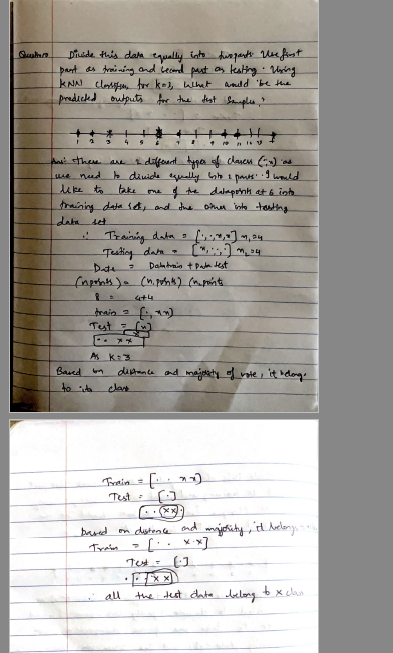 Question Divide this data equally into two parts. Use first
part as training and second part as testing. Using
KNN classifier, for k=3, What would be the
predicted outputs for the test samples?
1 2 3 4 5 6 7 8 9 10 11 12 13
Ans: There are 2 different types of classes (·,x) as
we need to divide equally into 2 parts. I would
like to take one of the datapoint at 6 into
training data set, and the other into testing
data set
∴ Training data = [·,·,x,x] n1=4
Testing data = [x,·,·,·] n2=4
Data = Data train + Data test
(n points) = (n, points) (n, points
8 = 4+4
train = [·, xx]
Test = [x]
·· xx
As K=3
Based on distance and majority of vote, it belongs
to its class
Train = [· · x x]
Test = [·]
[· · (xx)·]
based on distance and majority, it belongs
Train = [· · x·x]
Test = [·]
· · xx
∴ all the test data belong to x class